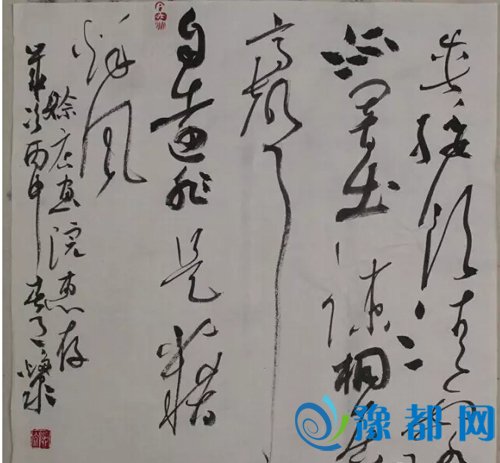 垂緌饮清露
流响出疏桐居
高声
自远非是藉
秋风
赊店画院惠存
岁次丙申
豫都网